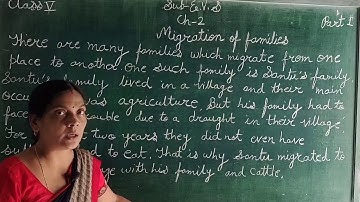 Class V Sub-E.V.S
Ch-2 Part 1
Migration of families
There are many families which migrate from one
place to another. One such family is Santu's family.
Santu's family lived in a village and their main
occu as agriculture. But his family had to
face ouble due to a draught in their village.
For two years they did not even have
su d to eat. That is why Santu migrated to
ge with his family and cattle.